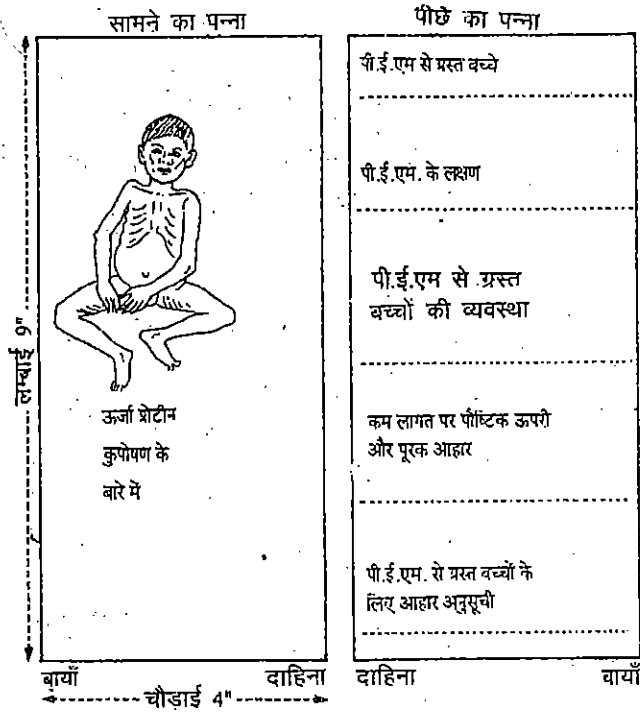 सामने का पन्ना
लम्बाई 9"
ऊर्जा प्रोटीन
कुपोषण के
बारे में
बायाँ
दाहिना
चौड़ाई 4"
पीछे का पन्ना
पी.ई.एम से ग्रस्त बच्चे
पी.ई.एम. के लक्षण
पी.ई.एम से ग्रस्त
बच्चों की व्यवस्था
कम लागत पर पौष्टिक ऊपरी
और पूरक आहार
पी.ई.एम. से ग्रस्त बच्चों के
लिए आहार अनुसूची
दाहिना
बायाँ